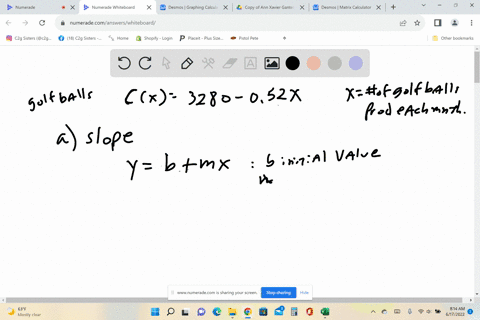 Numerade
Numerade Whiteboard
Desmos | Graphing Calcu
Copy of Ann Xavier Gantn
Desmos | Matrix Calculator
numerade.com/answers/whiteboard/
C2g Sisters (@c2g_sist
(18) C2g Sisters -
Shopify - Login
Placeit - Plus Size
Pistol Pete
Other bookmarks
golf balls C(x) = 3280 - 0.52x x = # of golf balls
prod each mnth.
a) slope
y = b + mx : b initial value
www.numerade.com is sharing your screen.
Stop sharing
Hide
Mostly clear
8:14 AM
6/17/2022